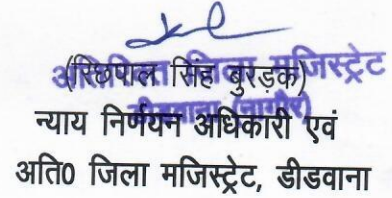 (रिछपाल सिंह बुरड़क)
अतिरिक्त जिला मजिस्ट्रेट
डीडवाना (नागौर)
न्याय निर्णयन अधिकारी एवं
अति0 जिला मजिस्ट्रेट, डीडवाना